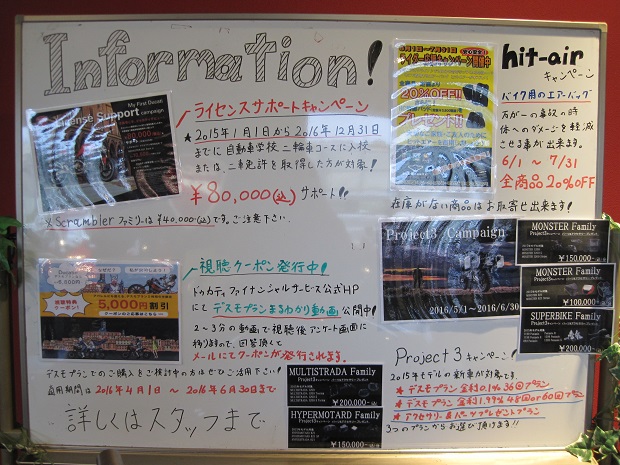 Information!
My First Ducati
License Support
campaign
ライセンスサポートキャンペーン
★2015年1月1日から2016年12月31日
までに自動車学校二輪車コースに入校
または、二輪免許を取得した方が対象!
¥80,000(込)サポート!!
※Scramblerファミリーは¥40,000(込)です。ご注意下さい。
20%OFF!!
プレゼント!!
hit-air
キャンペーン
バイク用のエアーバッグ
万が一の事故の時
体へのダメージを軽減
させる事が出来ます。
6/1 ~ 7/31
全商品20%OFF
在庫がない商品はお取寄せ出来ます!
5,000円割引
視聴クーポン発行中!
ドゥカティファイナンシャルサービス公式HP
にてデスモプランまるわかり動画公開中!
2~3分の動画で視聴後アンケート画面に
移りますので、回答頂くて
メールにてクーポンが発行されます。
デスモプランでのご購入をご検討中の方はぜひご活用下さい!!
適用期間は2016年4月1日~2016年6月30日まで
詳しくはスタッフまで
Project3 Campaign
2016/5/1~2016/6/30
MONSTER Family
¥150,000-
MONSTER Family
¥100,000-
SUPERBIKE Family
¥200,000-
MULTISTRADA Family
¥200,000-
HYPERMOTARD Family
¥150,000-
Project3キャンペーン!
2015年モデルの新車が対象です。
★デスモプラン 金利0.1% 36回プラン
★デスモプラン 金利1.99% 48or60回プラン
★アクセサリー&パーツプレゼントプラン
3つのプランからお選び頂けます!!